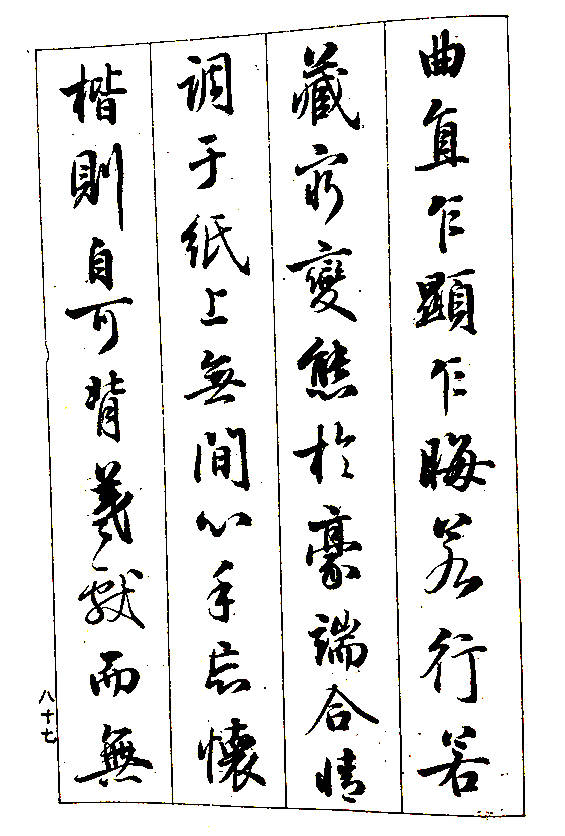 曲直乍顯乍晦若行若
藏窮變態於豪端合情
調于紙上無間心手忘懷
楷則自可背羲獻而無
八十七